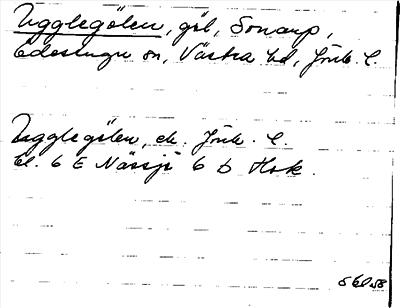 Ugglegölen, göl, Sonarp,
Ödestugu sn, Västra hd, Jönk. l.
Ugglegölen, ek. Jönk. l.
bl. 6 E Nässjö 6 b Hok.